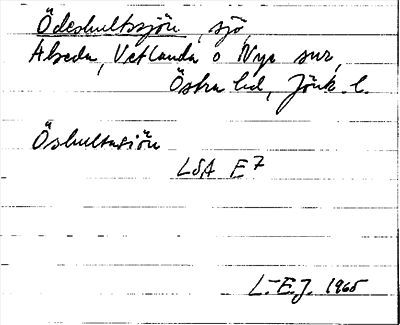 Ödeshultssjön, sjö,
Alseda, Vetlanda o Nye snr,
Östra hd, Jönk. l.
Öshultasjön
LSA E7
L.-E.J. 1965